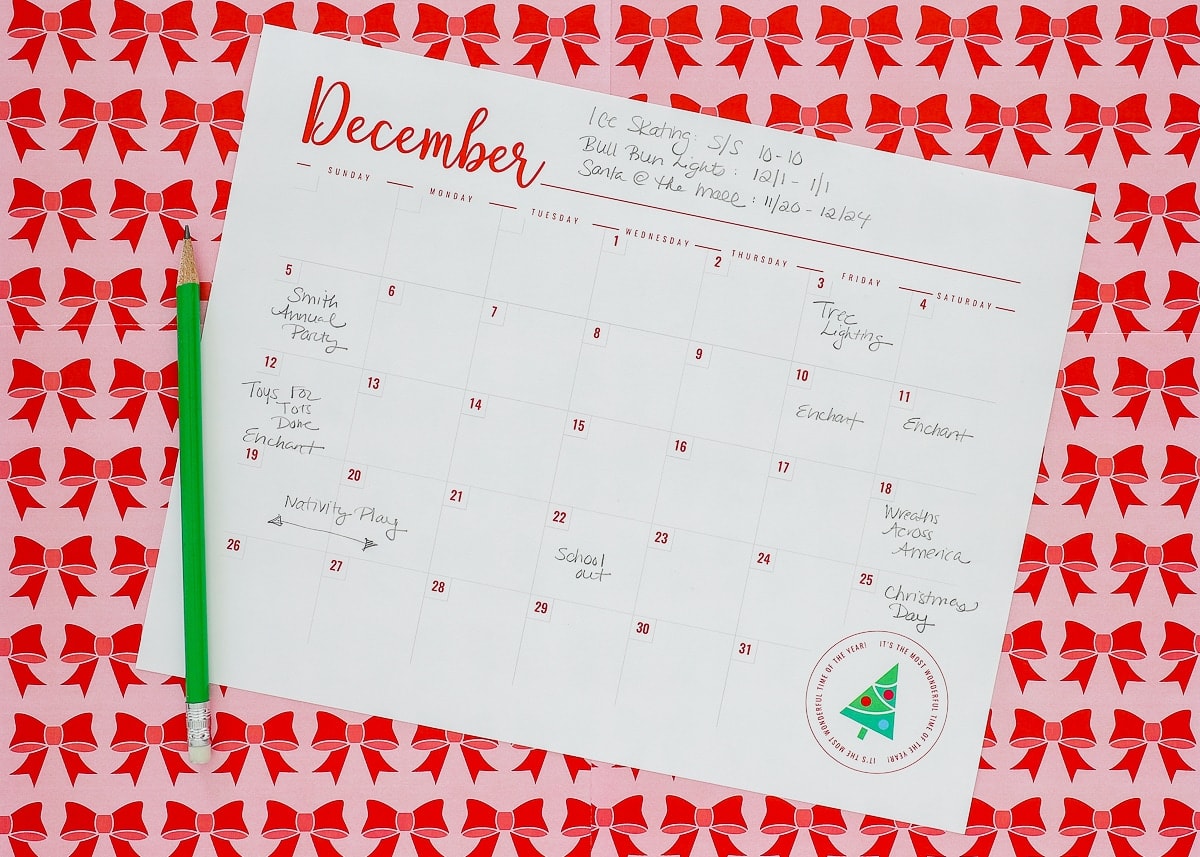 December
Ice Skating: S/S 10-10
Bull Run Lights: 12/1 - 1/1
Santa @ the mall: 11/20 - 12/24
SUNDAY MONDAY TUESDAY WEDNESDAY THURSDAY FRIDAY SATURDAY
1 2 3 4
Tree
Lighting
5 6 7 8 9 10 11
Smith
Annual
Party
Enchant Enchant
12 13 14 15 16 17 18
Toys For
Tots
Done
Enchant
Wreaths
Across
America
19 20 21 22 23 24 25
Nativity Play
School
out
Christmas
Day
26 27 28 29 30 31
IT'S THE MOST WONDERFUL TIME OF THE YEAR! IT'S THE MOST WONDERFUL TIME OF THE YEAR!